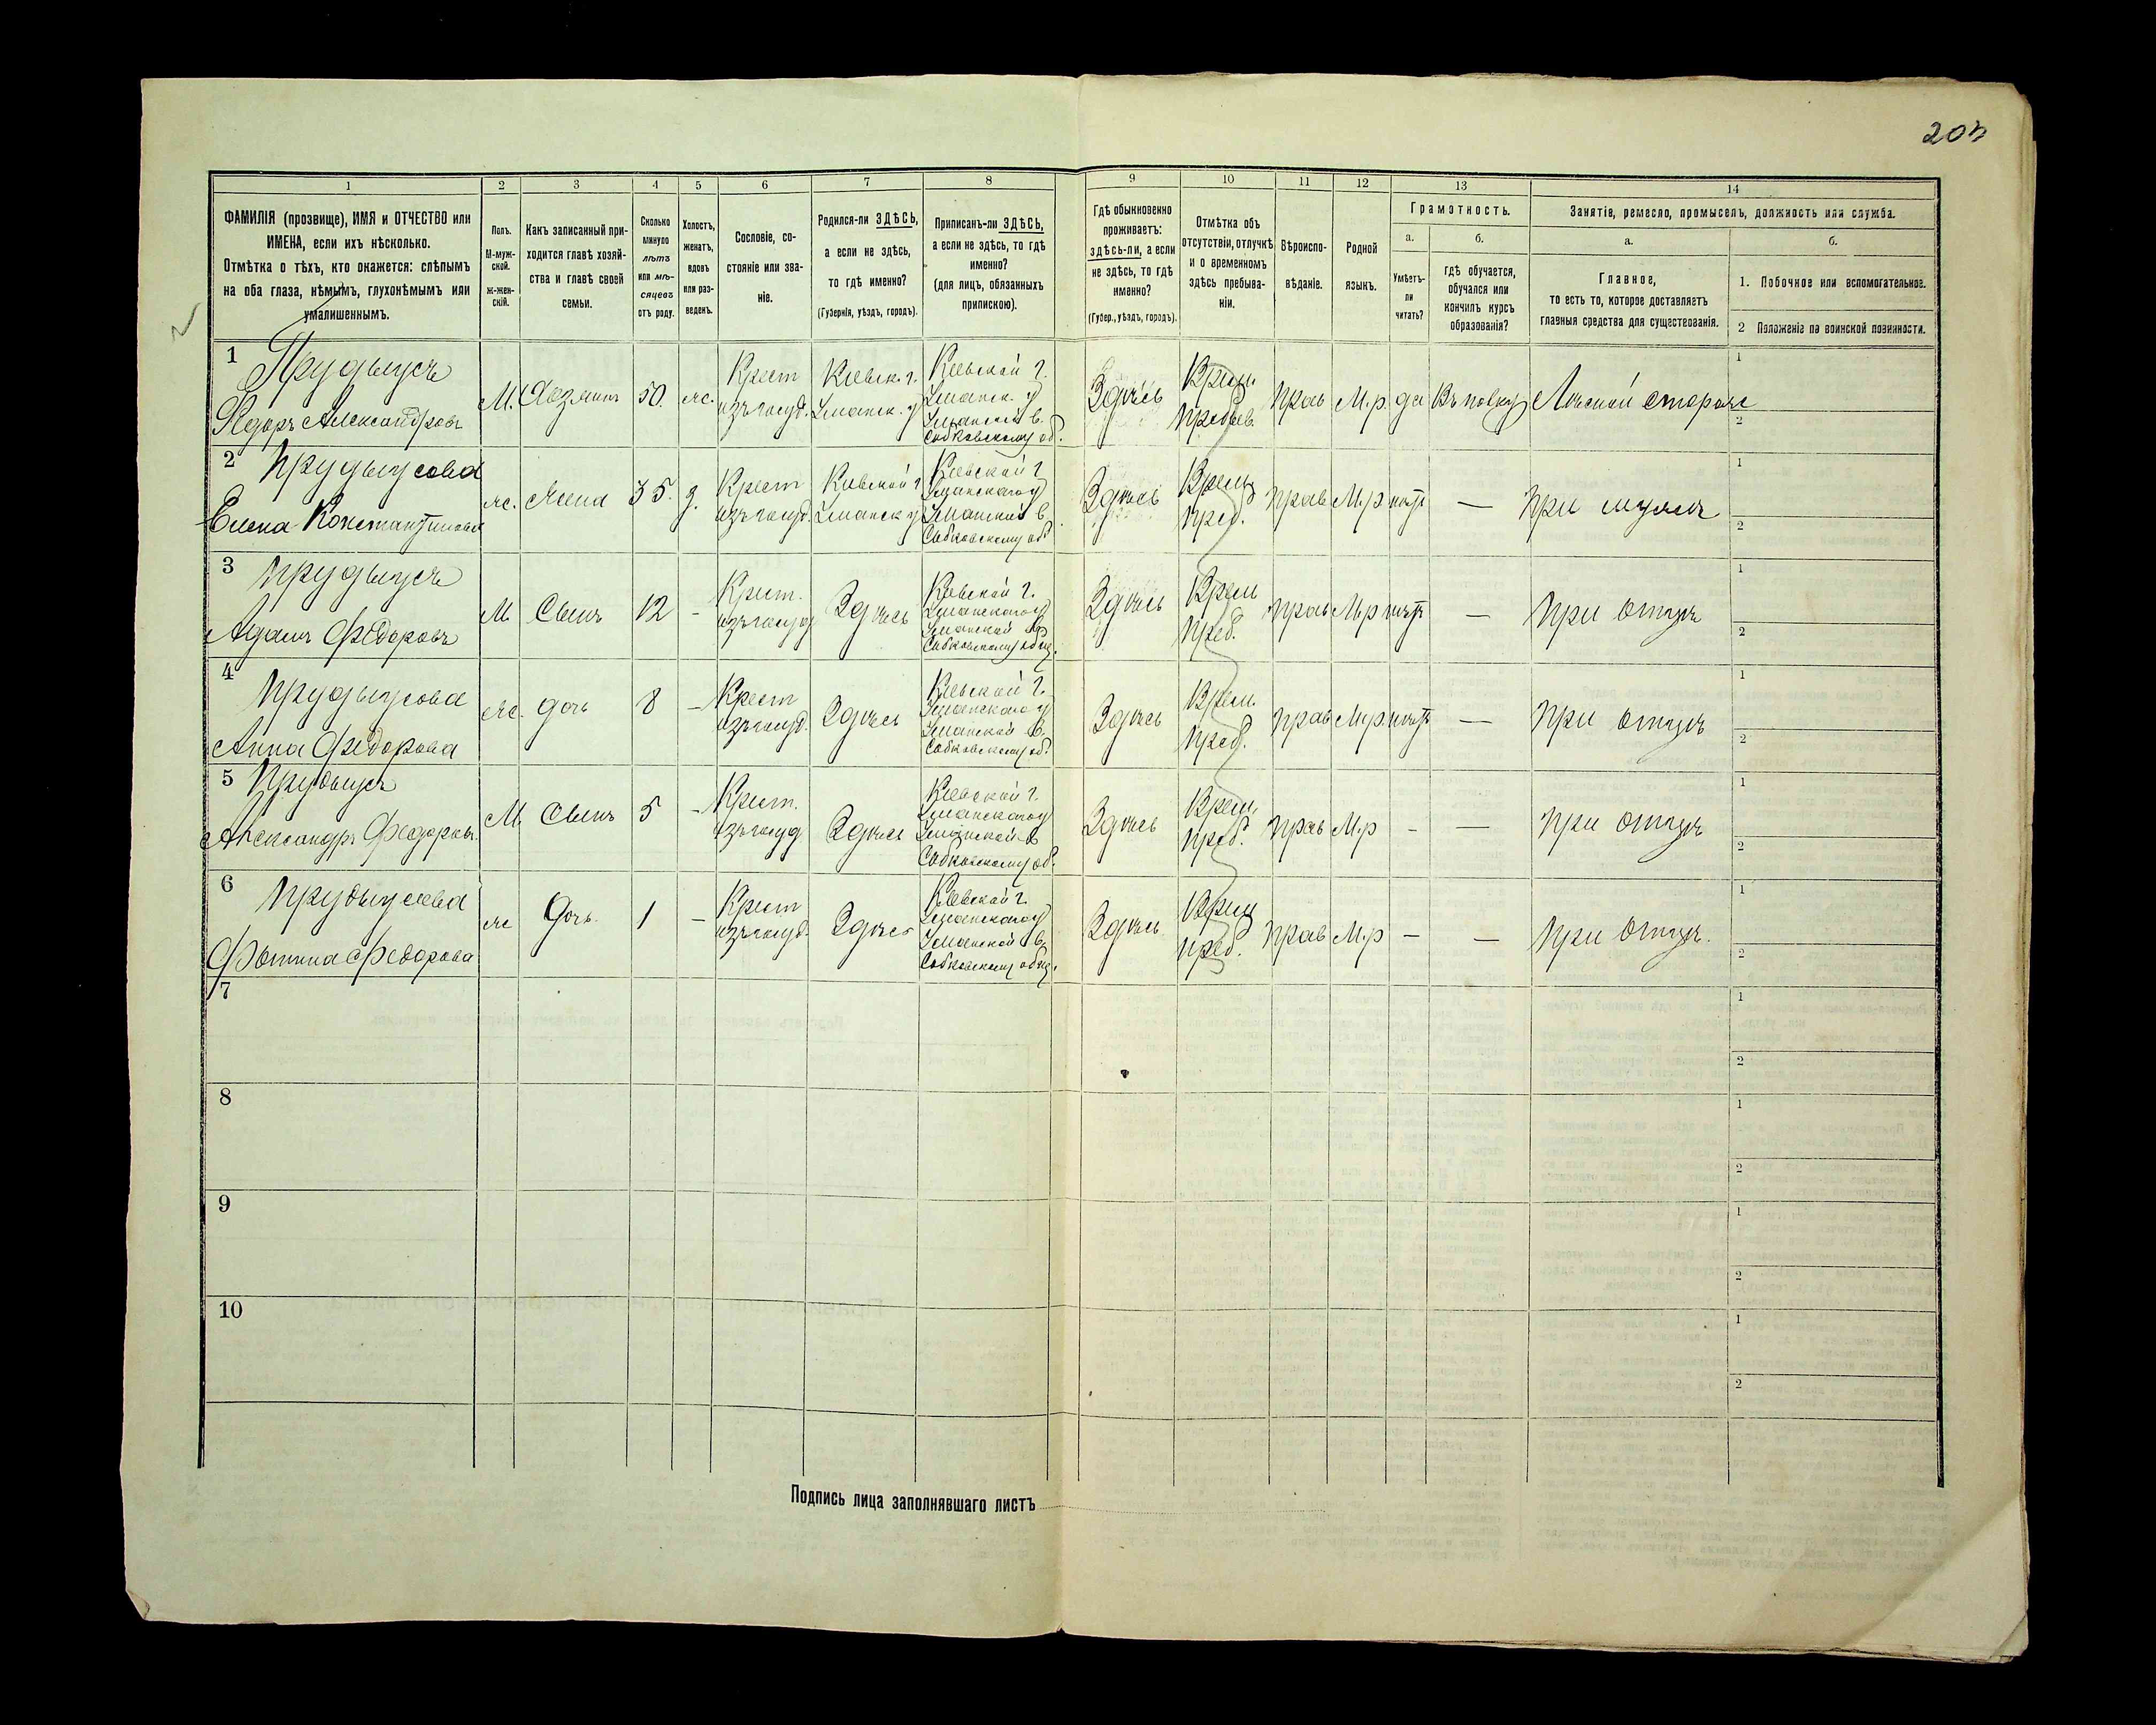 203
1
2
3
4
5
6
7
8
9
10
11
12
13
14
ФАМИЛІЯ (прозвище), ИМЯ и ОТЧЕСТВО или
ИМЕНА, если ихъ нѣсколько.
Отмѣтка о тѣхъ, кто окажется: слѣпымъ
на оба глаза, нѣмымъ, глухонѣмымъ или
умалишеннымъ.
Полъ.
М-муж-
ской.
ж-жен-
скій.
Какъ записанный при-
ходится главѣ хозяй-
ства и главѣ своей
семьи.
Сколько
минуло
лѣтъ
или мѣ-
сяцевъ
отъ роду.
Холостъ,
женатъ,
вдовъ
или раз-
веденъ.
Сословіе, со-
стояніе или зва-
ніе.
Родился-ли ЗДѢСЬ,
а если не здѣсь,
то гдѣ именно?
(Губернія, уѣздъ, городъ).
Приписанъ-ли ЗДѢСЬ,
а если не здѣсь, то гдѣ
именно?
(для лицъ, обязанныхъ
припискою).
Гдѣ обыкновенно
проживаетъ:
здѣсь-ли, а если
не здѣсь, то гдѣ
именно?
(Губер., уѣздъ, городъ).
Отмѣтка объ
отсутствіи, отлучкѣ
и о временномъ
здѣсь пребыва-
ніи.
Вѣроиспо-
вѣданіе.
Родной
языкъ.
Грамотность.
а.
Умѣетъ-
ли
читать?
б.
гдѣ обучается,
обучался или
кончилъ курсъ
образованія?
Занятіе, ремесло, промыселъ, должность или служба.
а.
Главное,
то есть то, которое доставляетъ
главныя средства для существованія.
б.
1. Побочное или вспомогательное.
2 Положеніе по воинской повинности.
1
Федоръ Александровъ
М. Хозяинъ 50. ж.
Крест
изъ госуд.
Кіевск. г.
Уманск. у
Кіевской г.
Уманск. у
Уманской в.
Собковскому об.
Здѣсь
Врем.
преб.
прав М.р. да
Въ полку
Лѣсной сторожъ
1
2
2
Елена Константинова
ж. Жена 35.
Крест
изъ госуд.
Кіевской г
Уманск у
Кіевской г
Уманскаго у
Уманской в
Собковскому об
Здѣсь
Врем
преб.
прав М.р нѣтъ — при мужѣ
1
2
3
Адамъ Федоровъ
М Сынъ 12 -
Крест.
изъ госуд
Здѣсь
Кіевской г.
Уманскаго у
Уманской в
Собковскому общ.
Здѣсь
Врем
преб.
прав М.р нѣтъ — при отцѣ
1
2
4
Анна Федорова
ж. дочь 8 -
Крест
изъ госуд.
Здѣсь
Кіевской г.
Уманскаго у
Уманской в.
Собковскому об.
Здѣсь
Врем.
преб.
прав М.р нѣтъ — при отцѣ
1
2
5
Александръ Федоровъ.
М Сынъ 5 -
Крест.
изъ госуд
Здѣсь
Кіевской г.
Уманскаго у
Уманской в
Собковскому об.
Здѣсь
Врем.
преб.
прав М.р - — при отцѣ
1
2
6
Федорова
ж Дочь. 1 -
Крест
изъ госуд.
Здѣсь
Кіевской г.
Уманскаго у
Уманской в
Собковскому общ.
Здѣсь
Врем
преб.
прав М.р - — при отцѣ.
1
2
7
1
2
8
1
2
9
1
2
10
1
2
Подпись лица заполнявшаго листъ